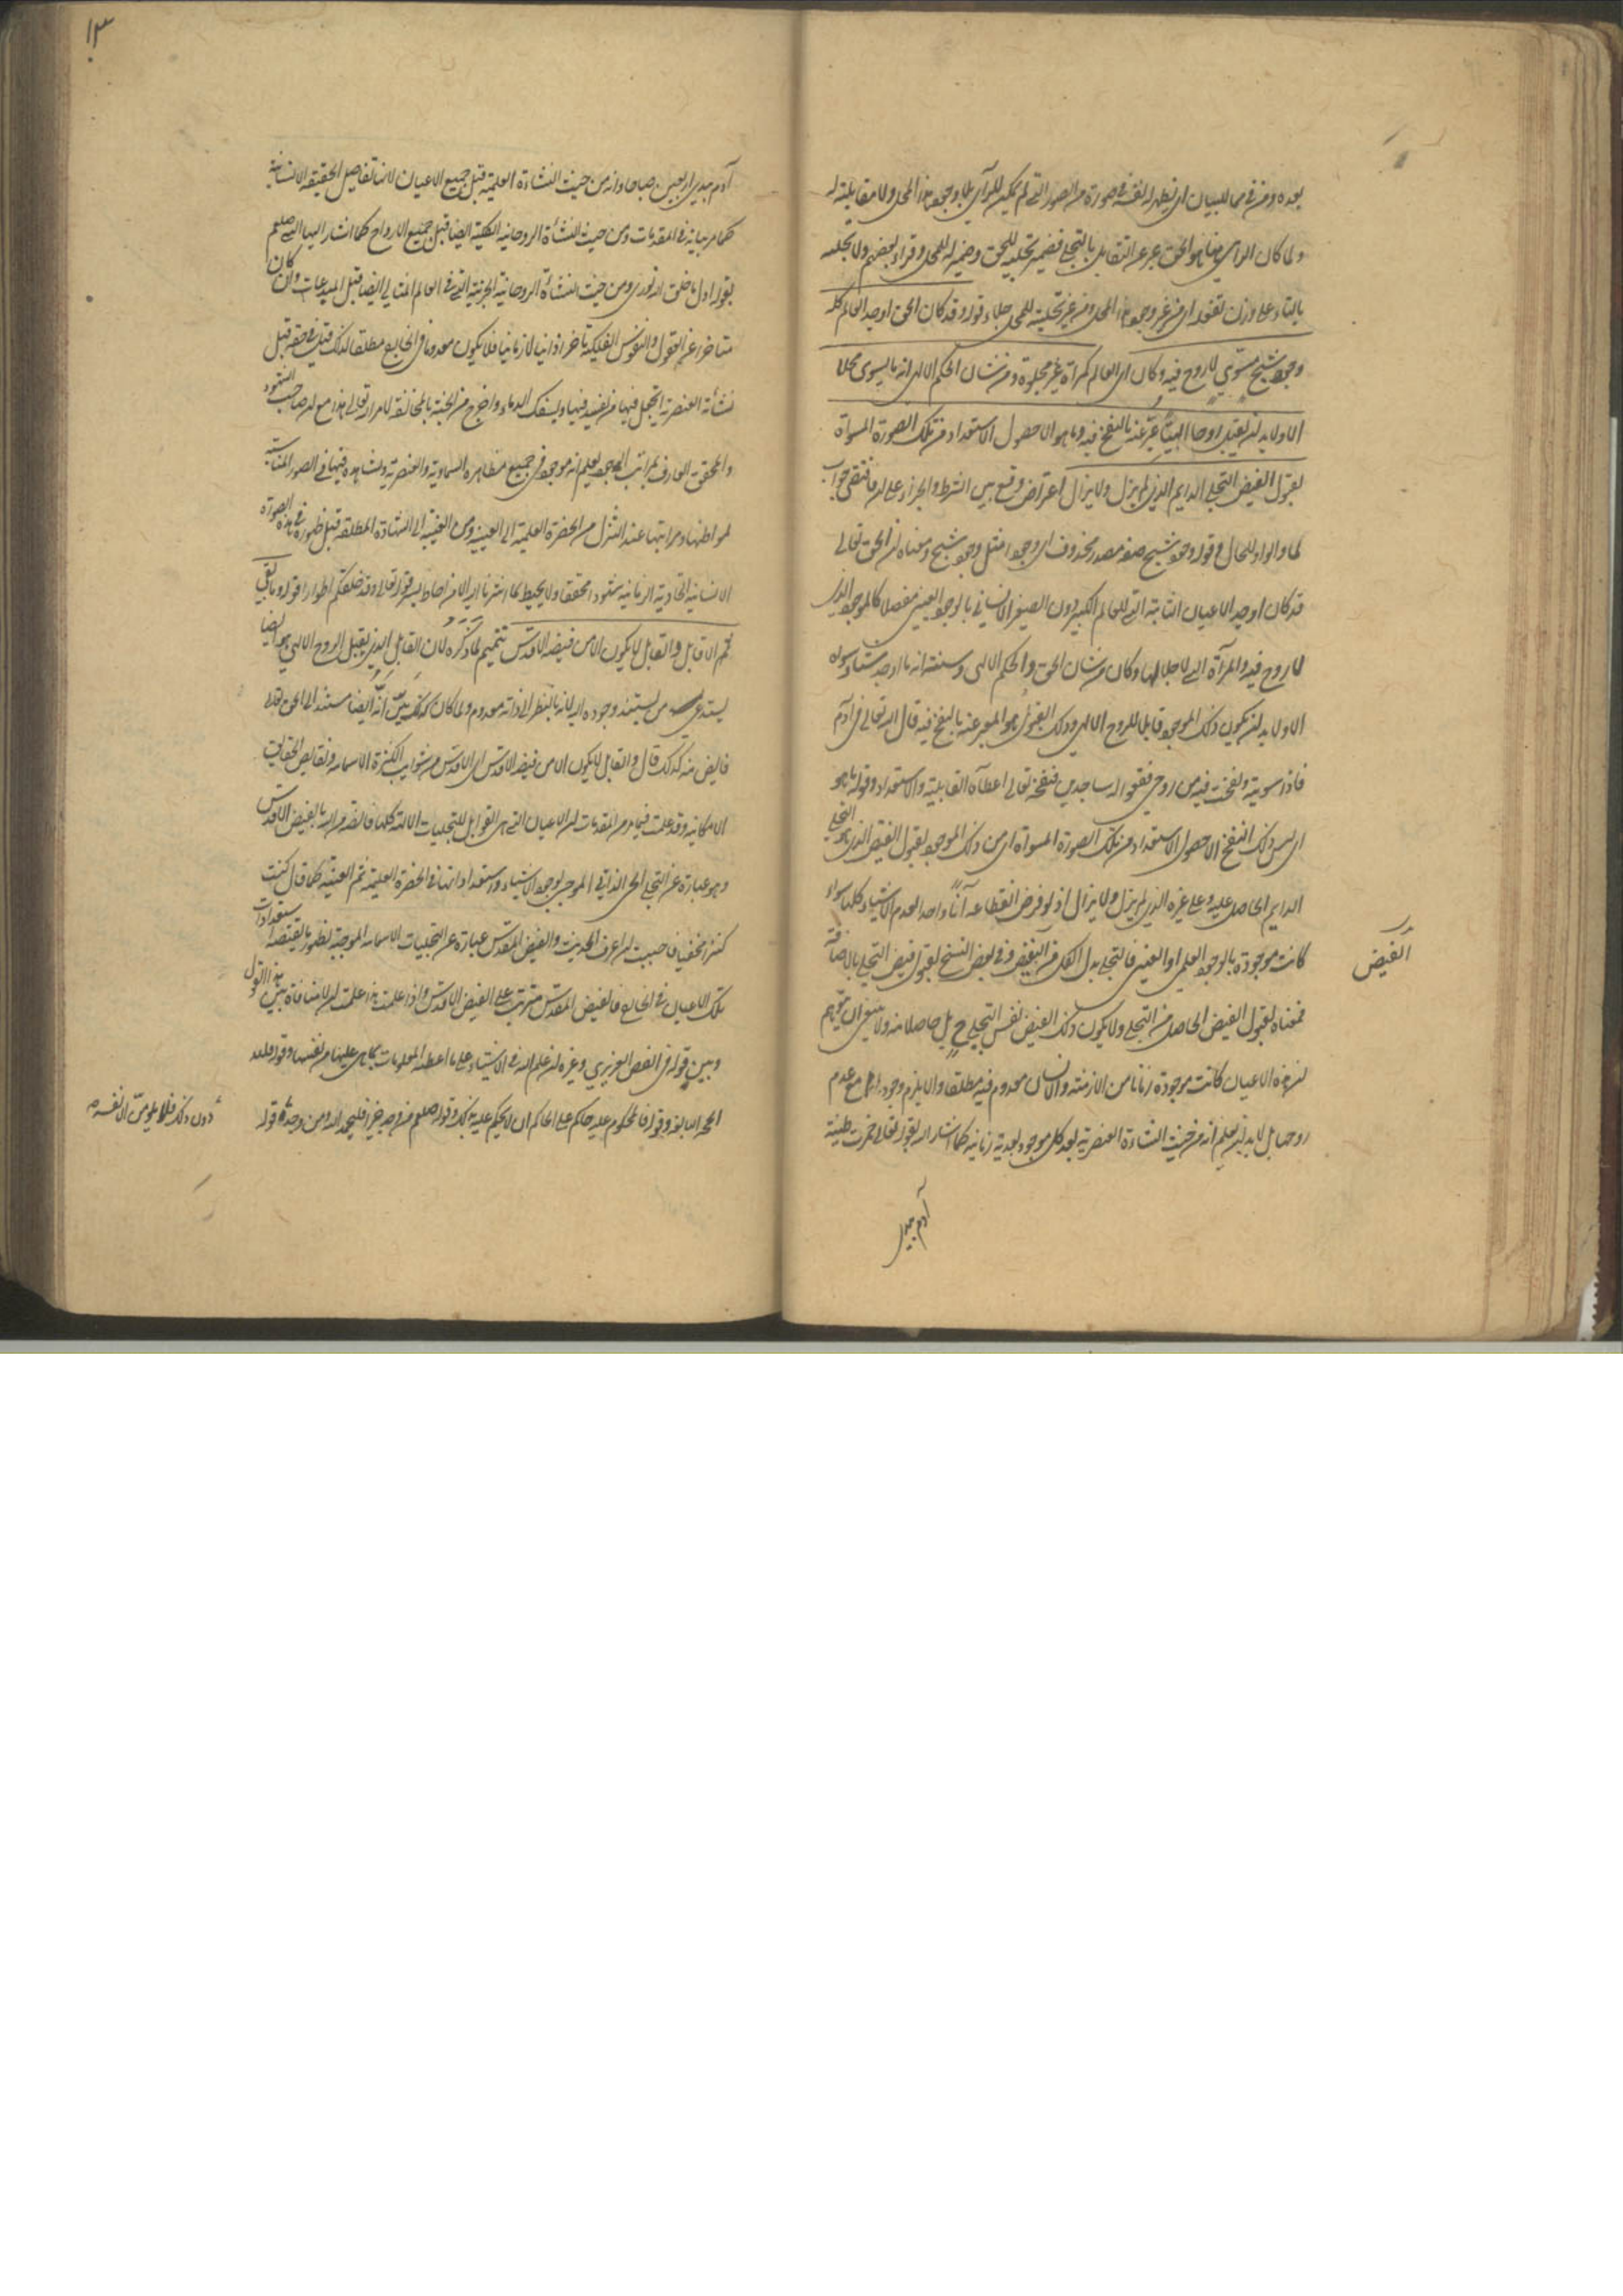 بعده ومن في مما للبيان اى تظهر له نفسه في صورة من الصور التي لم يكن للرآى بلا وجود هذا المحل ولا مقابلته له
ولما كان الراى هنا هو الحق عبر عن التقابل بالتجلى فضمير تجليه للحق وضمير له للمحل وقراء بعضهم ولا تجلية
بالتاء على وزن تفعلة اى من غير وجود هذا المحل ومن غير تجلية للمحل جلاء قوله وقد كان الحق اوجد العالم كله
وجود شبح مسوى لا روح فيه وكان اى العالم كمرآة غير مجلوة ومن شان الحكم الالهى انه ما يسوى محلا
الا ولا بد ان يقبل روحا الهيا عبر عنه بالنفخ فيه وما هو الا حصول الاستعداد من تلك الصورة المسواة
لقبول الفيض التجلى الدايم الذى لم يزل ولا يزال اعتراض وقع بين الشرط والجزاء على ان فاقتضى جواب
لما والواو للحال وقوله وجود شبح صفة مصدر محذوف اى وجودا مثل وجود شبح ومعناه ان الحق تعالى
قد كان اوجد الاعيان الثابتة التي للعالم الكبير دون الصغير الانسانى بالوجود العينى مفصلا كالموجود الذى
لا روح فيه والمرآة التي لا جلاء لها وكان من شان الحق والحكم الالهى وسنته انه ما اوجد شيئا وسواه
الا ولا بد ان يكون ذلك الموجود قابلا للروح الالهى وذلك القبول هو المعبر عنه بالنفخ فيه قال الله تعالى فى آدم
فاذا سويته ونفخت فيه من روحى فقعوا له ساجدين فنفخه تعالى اعطاه القابلية والاستعداد وقوله ما هو
اى ليس ذلك النفخ الا حصول الاستعداد من تلك الصورة المسواة اى من ذلك الموجود لقبول الفيض الذى هو التجلى
الدايم الحاصل عليه وعلى غيره الذى لم يزل ولا يزال اذ لو فرض انقطاعه آنا واحدا لعدم الاشياء كلها سواء
كانت موجودة بالوجود العلمى او العينى فالتجلى بدل الكل من الفيض وفى بعض النسخ لقبول فيض التجلى بالاضافة
الفيض
فمعناه لقبول الفيض الحاصل من التجلى ولا يكون ذلك الفيض نفس التجلى ح بل حاصلا منه ولا ينبغى ان يتوهم
ان هذه الاعيان كانت موجودة زمانا من الازمنة والانسان معدوم فيه مطلقا والا يلزم وجودها مع عدم
روحها بل لا بد ان يعلم انه من حيث النشاءة العنصرية بعد كل موجود بعدية زمانية كما اشار اليه بقوله تعالى خمرت طينة
آدم بيدى
١٣
آدم بيدى اربعين صباحا وانه من حيث النشاءة العلمية قبل جميع الاعيان لانها تفاصيل الحقيقة الانسانية
كما مر بيانه فى المقدمات ومن حيث النشاة الروحانية الكلية ايضا قبل جميع الارواح كما اشار اليها النبى صلعم
بقوله اول ما خلق الله نورى ومن حيث النشاة الروحانية الجزئية التي فى العالم المثالى ايضا قبل المبدعات وان كان
متاخرا عن العقول والنفوس الفلكية تاخرا ذاتيا لا زمانيا فلا يكون معدوما فى الخارج مطلقا لذلك قيل فى حقه قبل
نشأته العنصرية اتجعل فيها من يفسد فيها ويسفك الدماء واخرج من الجنة بالمخالفة لامر الله تعالى هذا مع ان صاحب الشهود
والمحقق العارف بمراتب الوجود يعلم انه موجود فى جميع مظاهره السماوية والعنصرية ويشاهده فيها فى الصور المناسبة
لمواطنها ومراتبها عند التنزل من الحضرة العلمية الى العينية ومن الغيبية الى الشهادة المطلقة قبل ظهوره فى هذه الصورة
الانسانية الحادثة الزمانية شهودا محققا ولا يحيط بما اشرنا اليه الا من احاط بسر قوله تعالى وقد خلقكم اطوارا قوله وما بقى
ثم الا قابل والقابل لا يكون الا من فيضه الاقدس تتميم لما ذكره لان القابل الذى يقبل الروح الالهى هو ايضا
يستدعى من يستند وجوده اليه لانه بالنظر الى ذاته معدوم ولما كان كذلك بين انه ايضا مستند الى الحق تعالى
فايض منه كذلك قال والقابل لا يكون الا من فيضه الاقدس اى الاقدس من شوايب الكثرة الاسمائية ونقايص الحقايق
الامكانية وقد علمت فيما مر من المقدمات ان الاعيان التي هى القوابل للتجليات الالهية كلها فايضة من الله بالفيض الاقدس
وهو عبارة عن التجلى الحبى الذاتى الموجب لوجود الاشياء واستعداداتها فى الحضرة العلمية ثم العينية كما قال كنت
كنزا مخفيا فاحببت ان اعرف الحديث والفيض المقدس عبارة عن التجليات الاسمائية الموجبة لظهور ما يقتضيه استعدادات
تلك الاعيان فى الخارج فالفيض المقدس مترتب على الفيض الاقدس واذا علمت هذا علمت ان لا منافاة بين هذا القول
وبين قوله فى الفص العزيرى وغيره ان علم الله فى الاشياء على ما اعطته المعلومات مما هى عليها من نفسها وقوله فلله
الحجة البالغة وقوله فالمحكوم عليه حاكم على الحاكم ان لا يحكم عليه بذلك وقوله صلعم من وجد خيرا فليحمد الله ومن وجد قوله
دون ذلك فلا يلومن الا نفسه